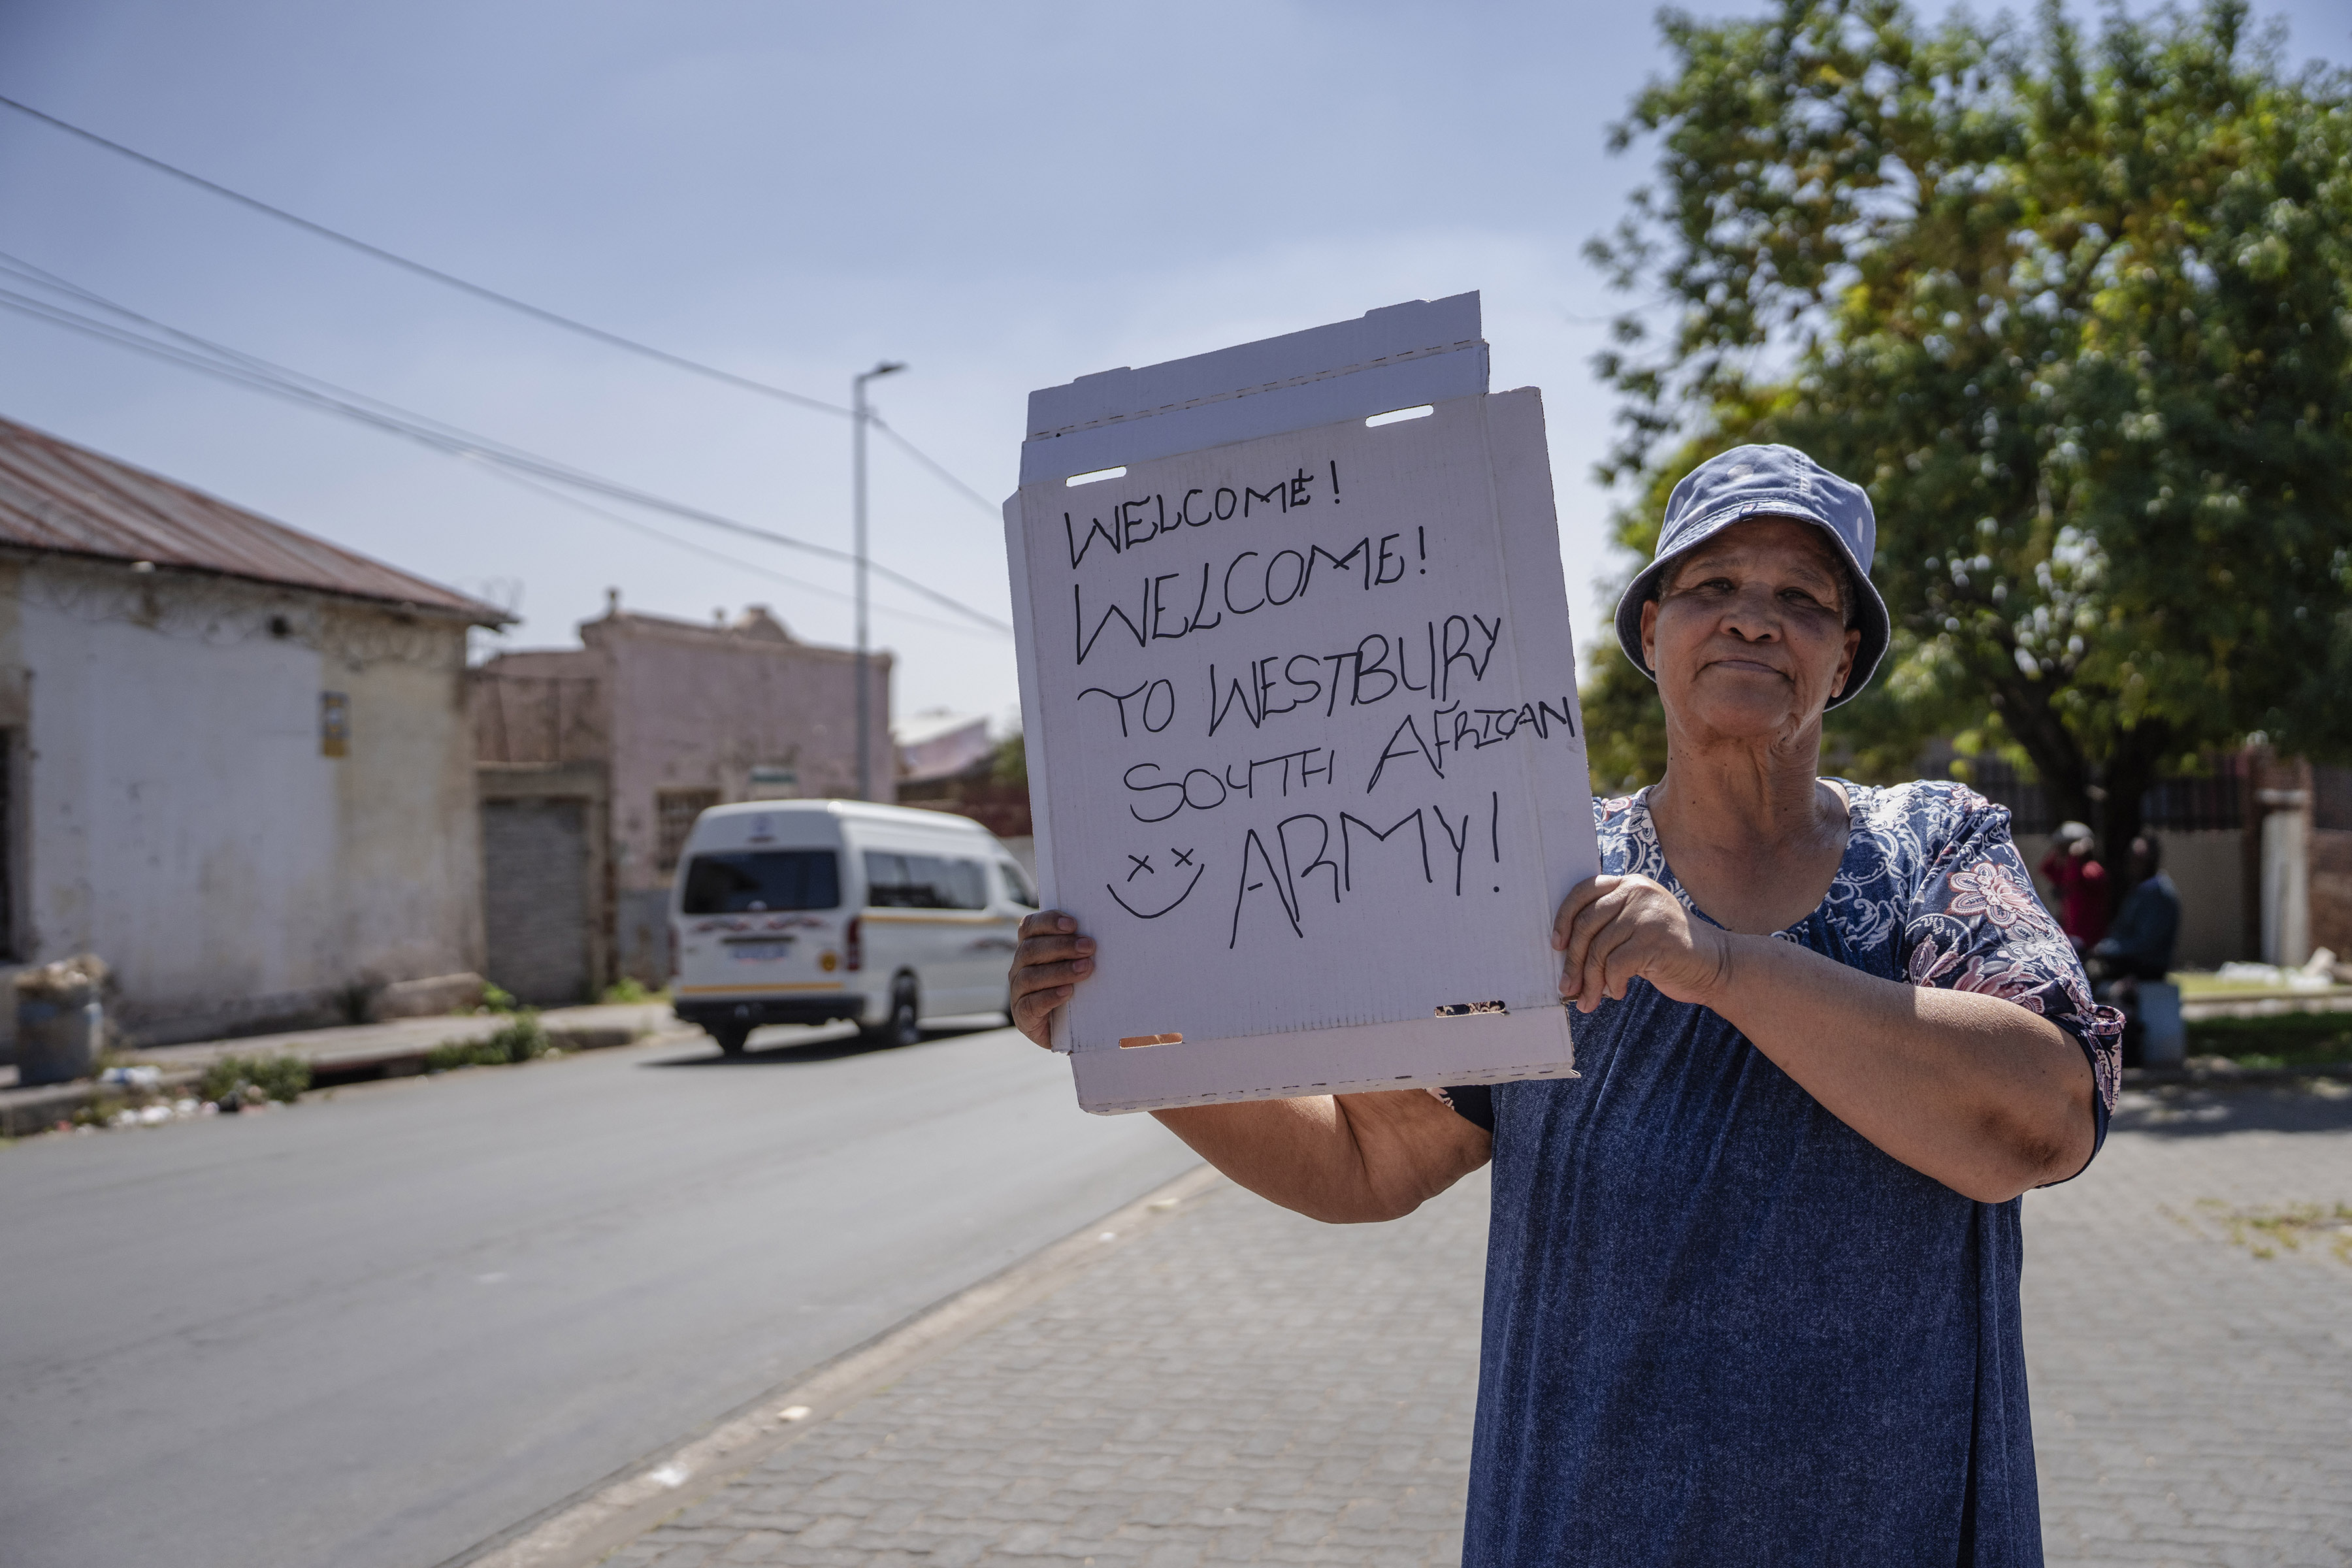 WELCOME!
WELCOME!
TO WESTBURY
SOUTH AFRICAN
ARMY!